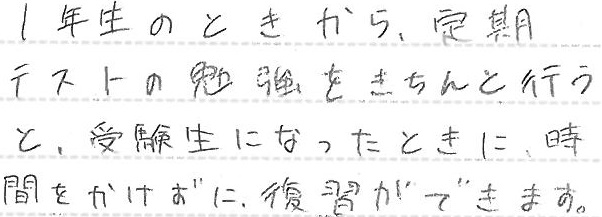 1年生のときから、定期
テストの勉強をきちんと行う
と、受験生になったときに、時
間をかけずに、復習ができます。